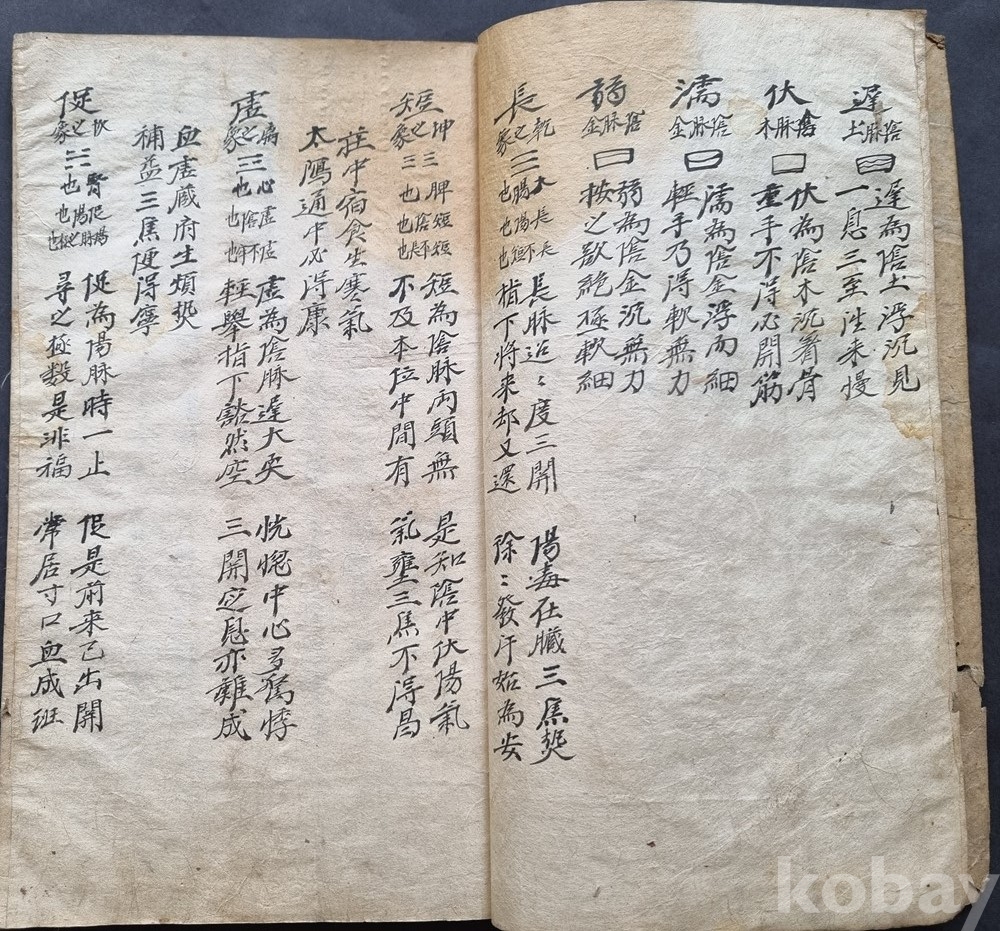 遲
陰脉土
遲為陰土浮沉見
一息三至往来慢
伏
陰脉木
伏為陰木沉着骨
重手不淂必開筋
濡
陰脉金
濡為陰金浮而細
輕手乃得軟無力
弱
陰脉金
弱為陰金沉無力
按之欲絶極軟細
長
乾之象三
太陽也 長陽也 不長短也
長脉迢〻度三開
指下将来却又還
陽毒在臟三焦𤍠
徐〻發汗始為安
短
坤之象三三
脾也 短陰也 不短長也
短為陰脉両頭無
不及本位中間有
是知陰中伏陽氣
氣壅三焦不得昌
莊中宿食生寒氣
太陽通中必得康
虛
離之象三
心也 虛陰也
虛為陰脉遲大耎
輕舉指下豁然空
恍惚中心多驚悸
三開定息亦難成
血虛蔵府生煩𤍠
補益三焦便得寧
促
坎之象
腎也 促陽也
促為陽脉時一止
尋之極数是非福
促是前来已出開
常居寸口血成班
kobay